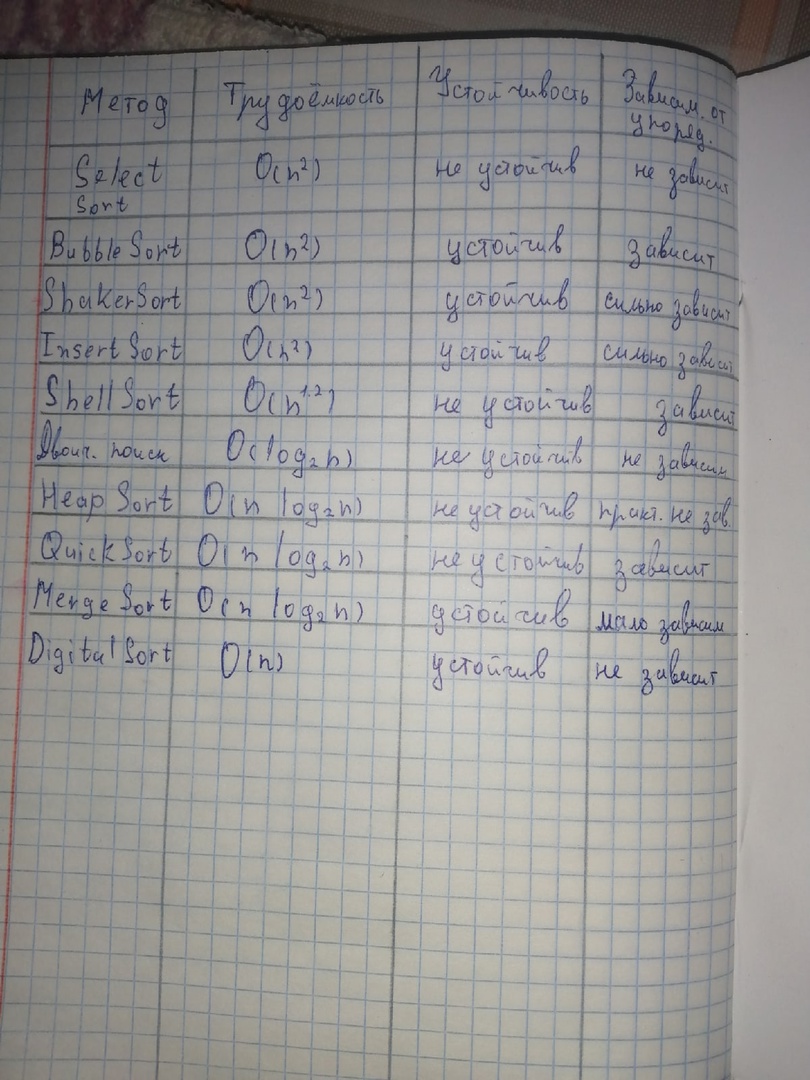 Метод Трудоёмкость Устойчивость Зависим. от упоряд.
Select Sort O(n²) не устойчив не зависит
Bubble Sort O(n²) устойчив зависит
ShakerSort O(n²) устойчив сильно зависит
Insert Sort O(n²) устойчив сильно зависит
Shell Sort O(n^1.2) не устойчив зависит
Двоич. поиск O(log₂n) не устойчив не зависим
Heap Sort O(n log₂n) не устойчив практ. не зав.
QuickSort O(n log₂n) не устойчив зависит
Merge Sort O(n log₂n) устойчив мало зависим
Digital Sort O(n) устойчив не зависит